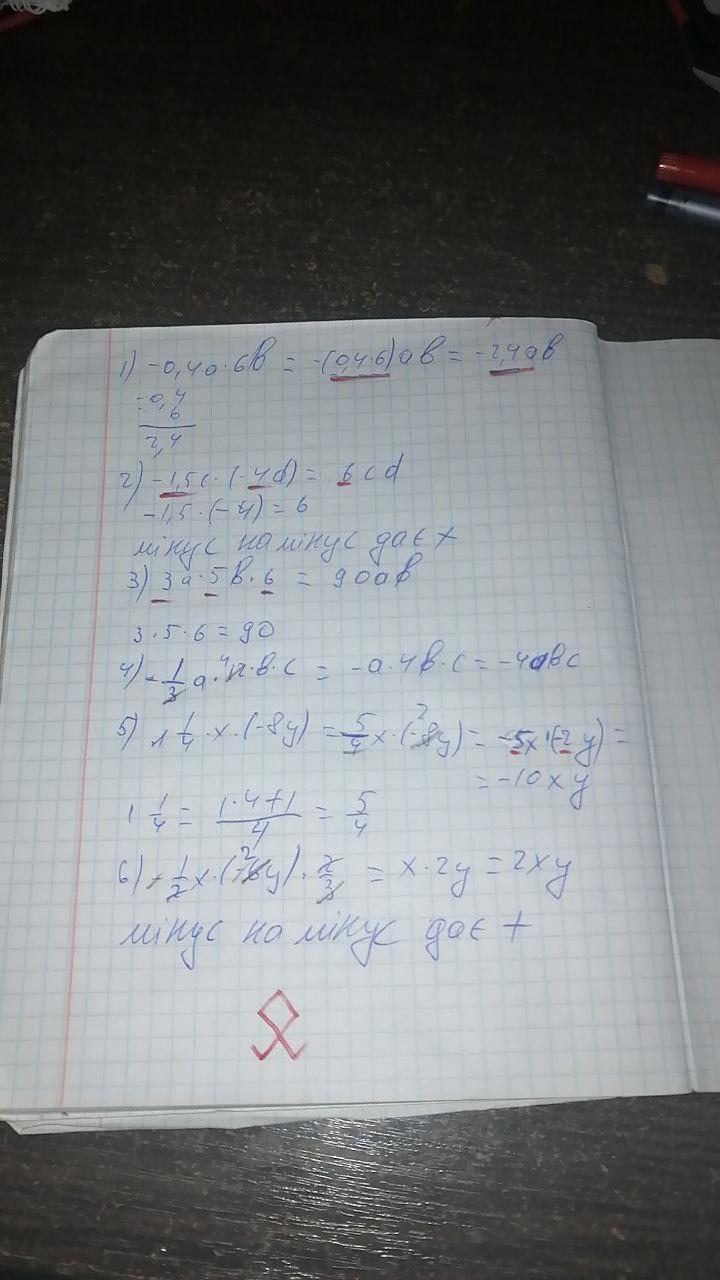 1) -0,4a·6b = -(0,4·6)ab = -2,4ab
-0,4
6
2,4
2) -1,5c·(-4d) = 6cd
-1,5·(-4) = 6
мінус на мінус дає +
3) 3a·5b·6 = 90ab
3·5·6 = 90
4) -1/3 a· ·b·c = -a·4b·c = -4abc
5) 1 1/4·x·(-8y) = 5/4 x·(-8y) = -5x·(-2y) =
= -10xy
1 1/4 = 1·4+1/4 = 5/4
6) -1/2 x·(-6y)·2/3 = x·2y = 2xy
мінус на мінус дає +